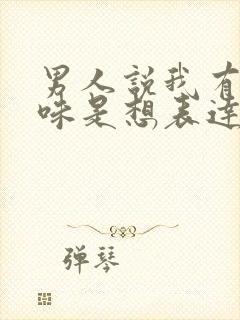 男人說我有
味是想表達
彈琴